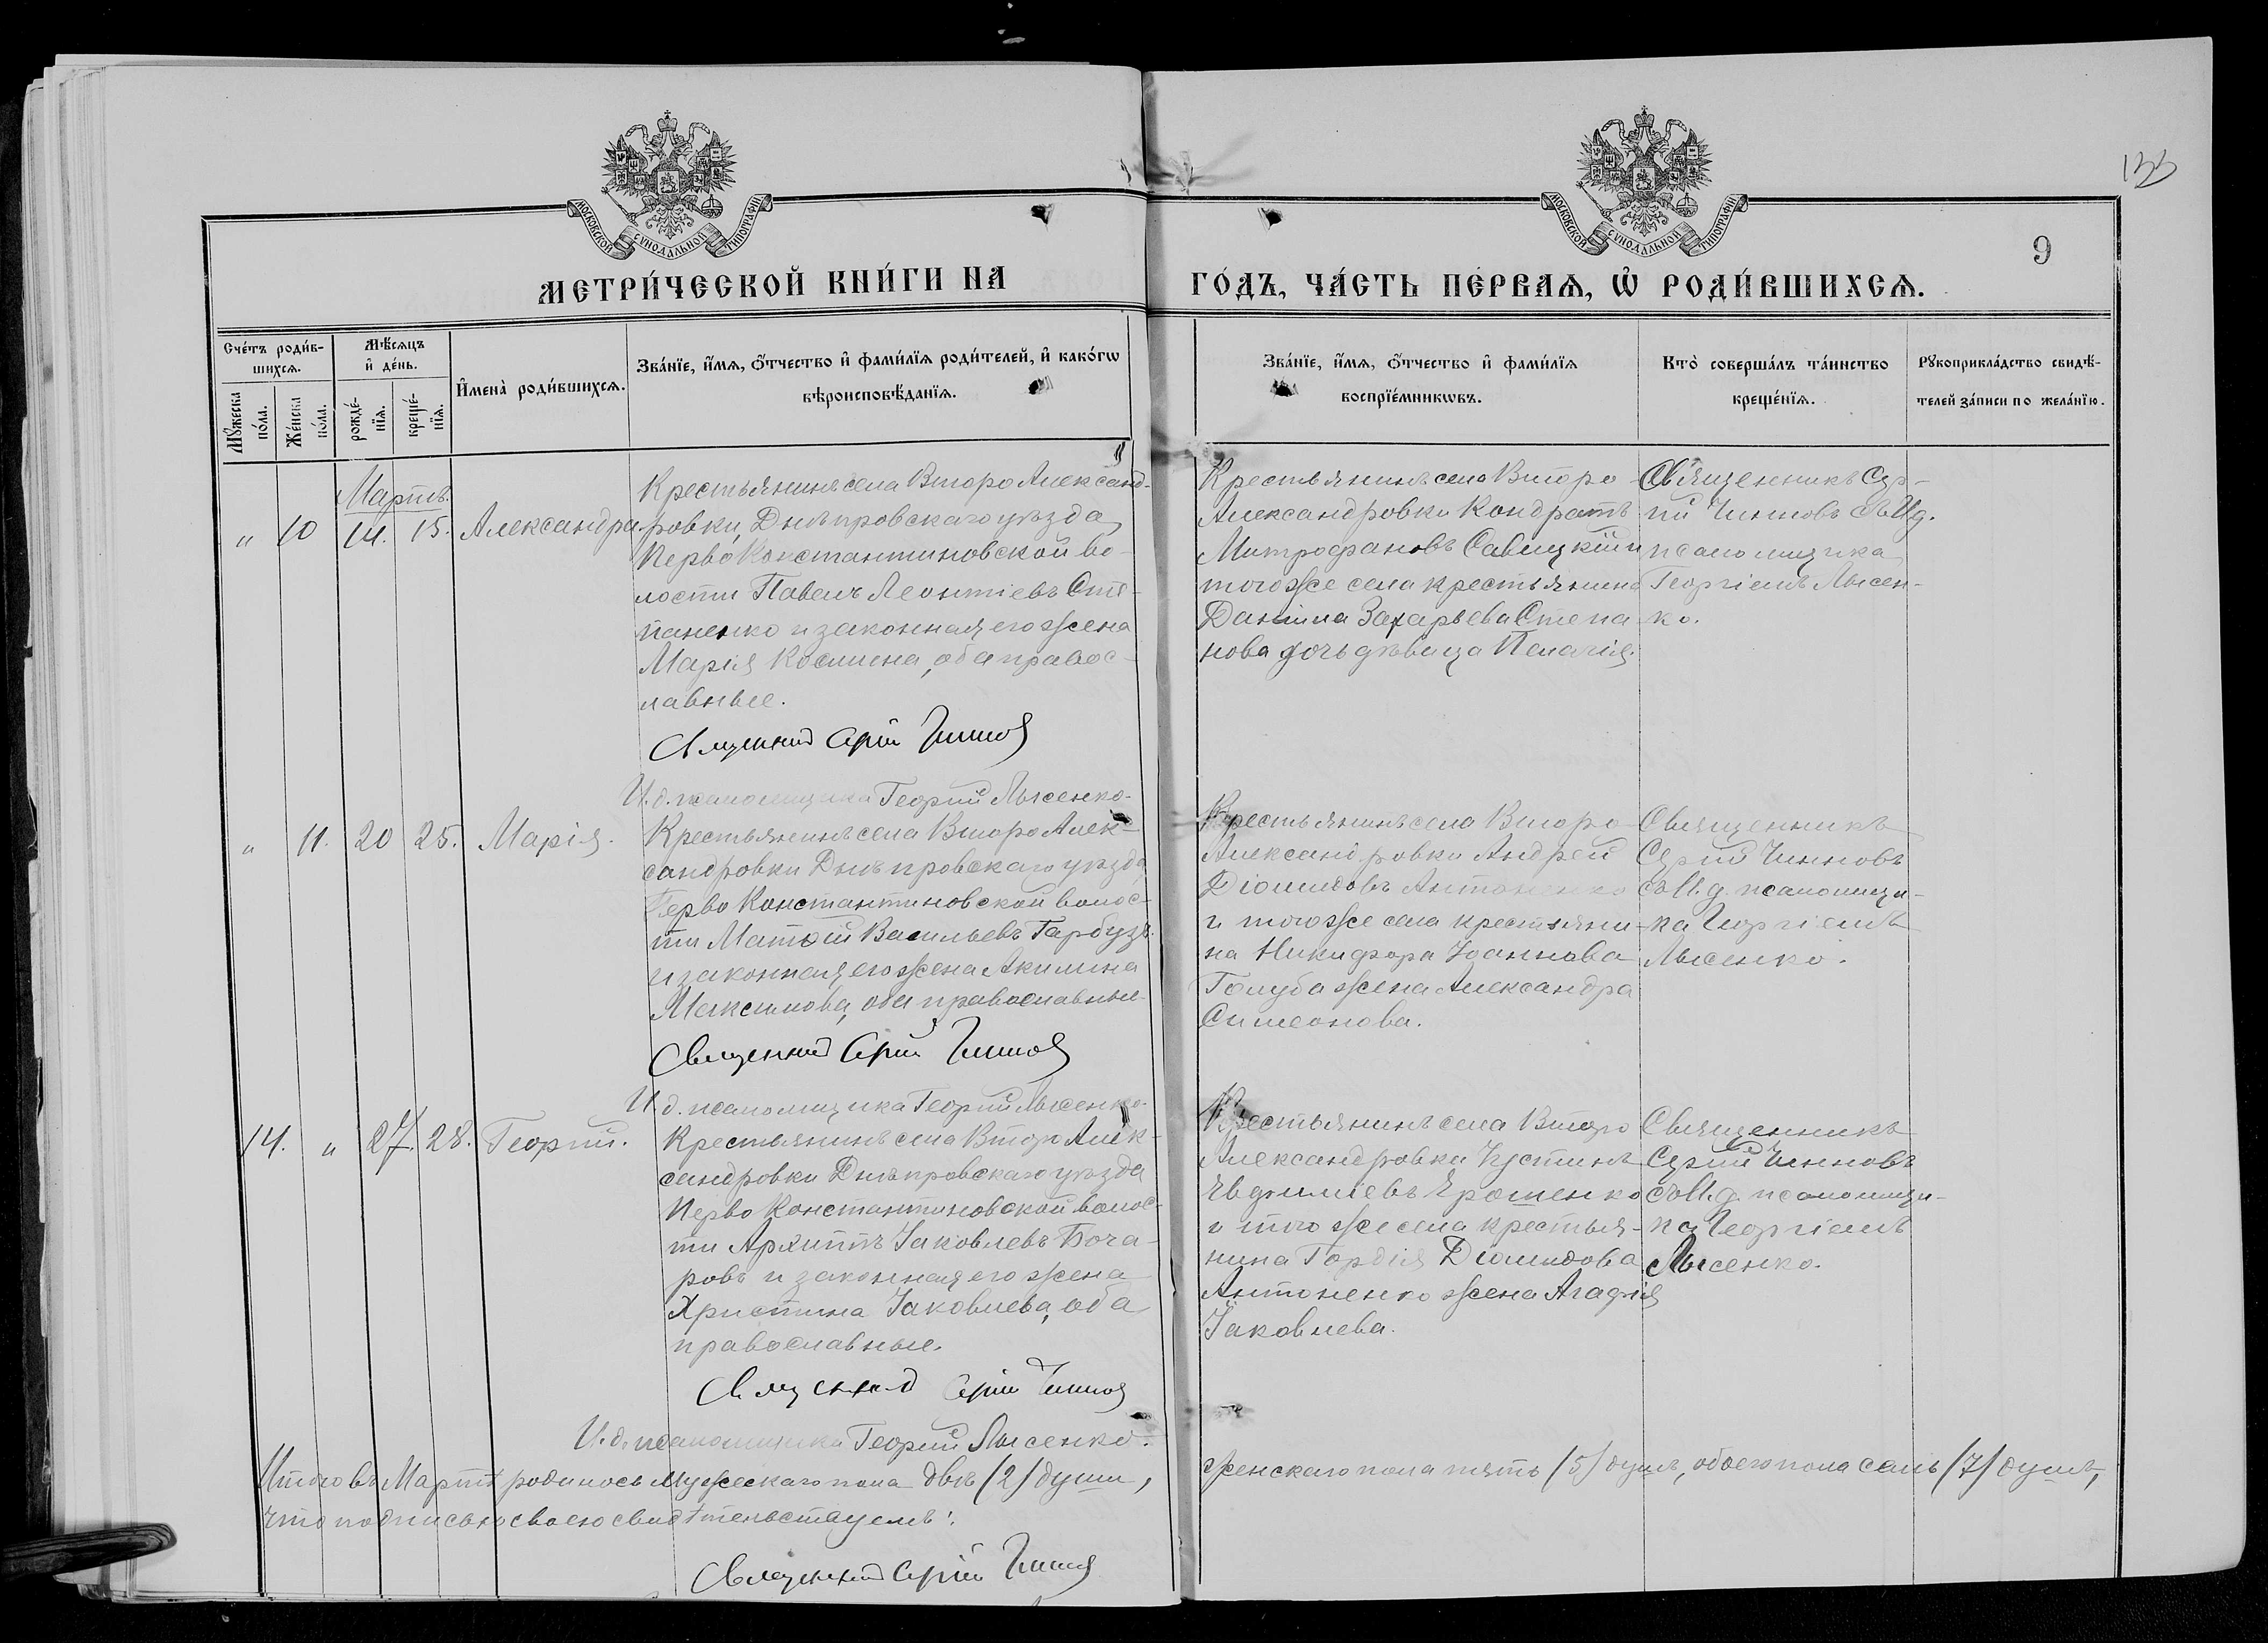 133
МОСКОВСКОЙ СѴНОДАЛЬНОЙ ТИПОГРАФІИ
МОСКОВСКОЙ СѴНОДАЛЬНОЙ ТИПОГРАФІИ
9
МЕТРИ́ЧЕСКОЙ КНИ́ГИ НА ГО́ДЪ, ЧА́СТЬ ПЕ́РВАѦ, Ѽ РОДИ́ВШИХСѦ.
Сче́тъ роди́в-
шихсѧ.
Мꙋ́жеска по́ла.
Же́нска по́ла.
Мѣ́сѧцъ
и҆ де́нь.
рожде́-
нїѧ.
креще́-
нїѧ.
И҆мена̀ роди́вшихсѧ.
Зва́нїе, и҆́мѧ, ѻ҆́тчество и҆ фами́лїѧ роди́телей, и҆ како́гѡ
вѣроисповѣ́данїѧ.
Зва́нїе, и҆́мѧ, ѻ҆́тчество и҆ фами́лїѧ
воспрїе́мникѡвъ.
Кто̀ соверша́лъ та́инство
креще́нїѧ.
Рꙋкоприкла́дство свидѣ́-
телей за́писи по жела́нїю.
Мартъ.
" 10 14. 15. Александра
Крестьянинъ села Второ Александ-
ровки, Днѣпровскаго уѣзда,
Перво Константиновской во-
лости Павелъ Леонтіевъ Сте-
паненко и законная его жена
Марія Космина, оба правос-
лавные.
Священникъ Сергій Чинновъ
И. д. псаломщика Георгій Лысенко.
Крестьянинъ села Второ
Александровки Кондратъ
Митрофановъ Савицкій и
того же села крестьянина
Даніила Захарьева Степа-
нова дочь дѣвица Пелагія.
Священникъ Сер-
гій Чинновъ съ И. д.
псаломщика
Георгіемъ Лысен-
ко.
" 11. 20 25. Марія.
Крестьянинъ села Второ Алек-
сандровки Днѣпровскаго уѣзда,
Перво Константиновской волос-
ти Матѳій Васильевъ Гарбузъ
и законная его жена Акилина
Максимова, оба православные.
Священникъ Сергій Чинновъ
И. д. псаломщика Георгій Лысенко.
Крестьянинъ села Второ
Александровки Андрей
Діомидовъ Антоненко
и того же села крестьяни-
на Никифора Іоаннова
Голуба жена Александра
Симеонова.
Священникъ
Сергій Чинновъ
съ И. д. псаломщи-
ка Георгіемъ
Лысенко.
14. " 27. 28. Георгій.
Крестьянинъ села Второ Алек-
сандровки Днѣпровскаго уѣзда
Перво Константиновской волос-
ти Архиппъ Іаковлевъ Боча-
ровъ и законная его жена
Христина Іаковлева, оба
православные.
Священникъ Сергій Чинновъ
И. д. псаломщика Георгій Лысенко.
Крестьянинъ села Второ
Александровки Іустинъ
Евфиміевъ Ярошенко
и того же села крестья-
нина Гордія Діомидова
Антоненко жена Агафія
Іаковлева.
Священникъ
Сергій Чинновъ
съ И. д. псаломщи-
ка Георгіемъ
Лысенко.
Итого въ Мартѣ родилось мужескаго пола двѣ (2) души, женскаго пола пять (5) душъ, обоего пола семь (7) душъ,
что подписью своею свидѣтельствуемъ:
Священникъ Сергій Чинновъ